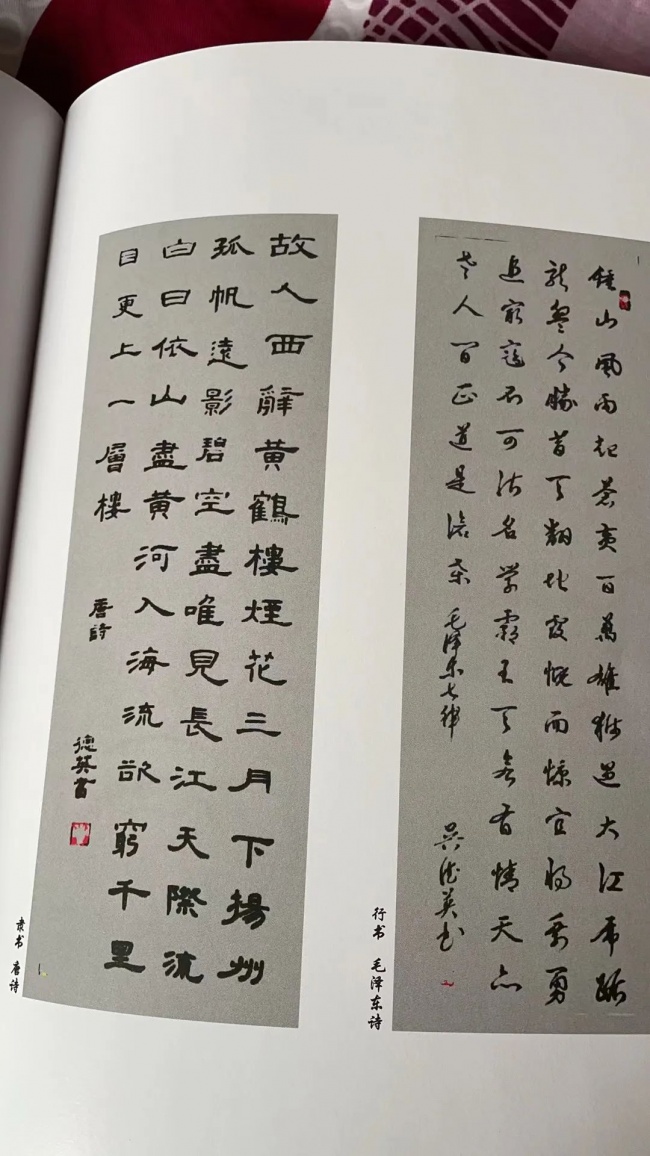 故人西辭黃鶴樓煙花三月下揚州
孤帆遠影碧空盡唯見長江天際流
白日依山盡黃河入海流欲窮千里
目更上一層樓
唐詩
德英書
隶书 唐诗
鍾山風雨起苍黄百萬雄狮过大江虎踞
龙盘今勝昔天翻地覆慨而慷宜将剩勇
追窮寇不可沽名学霸王天若有情天亦
老人间正道是沧桑 毛泽东七律
吴德英书
行书 毛泽东诗